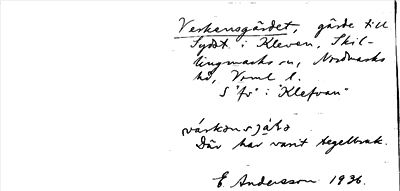 Verkansgärdet, gärde till
Sydöst i Klevan, Skil-
lingmarks sn, Nordmarks
hd, Vrml l.
S "fv" i "Klefvan"
Där har varit tegelbruk.
E. Andersson 1936.